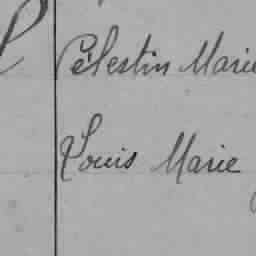 Célestin Marie
Louis Marie